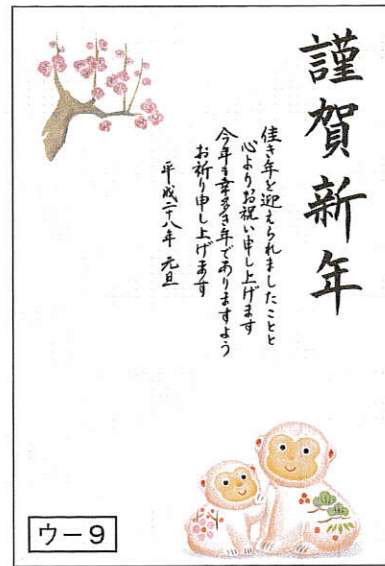 謹賀新年
佳き年を迎えられましたことと
心よりお祝い申し上げます
今年も幸多き年でありますよう
お祈り申し上げます
平成二十八年 元旦
ウ－9